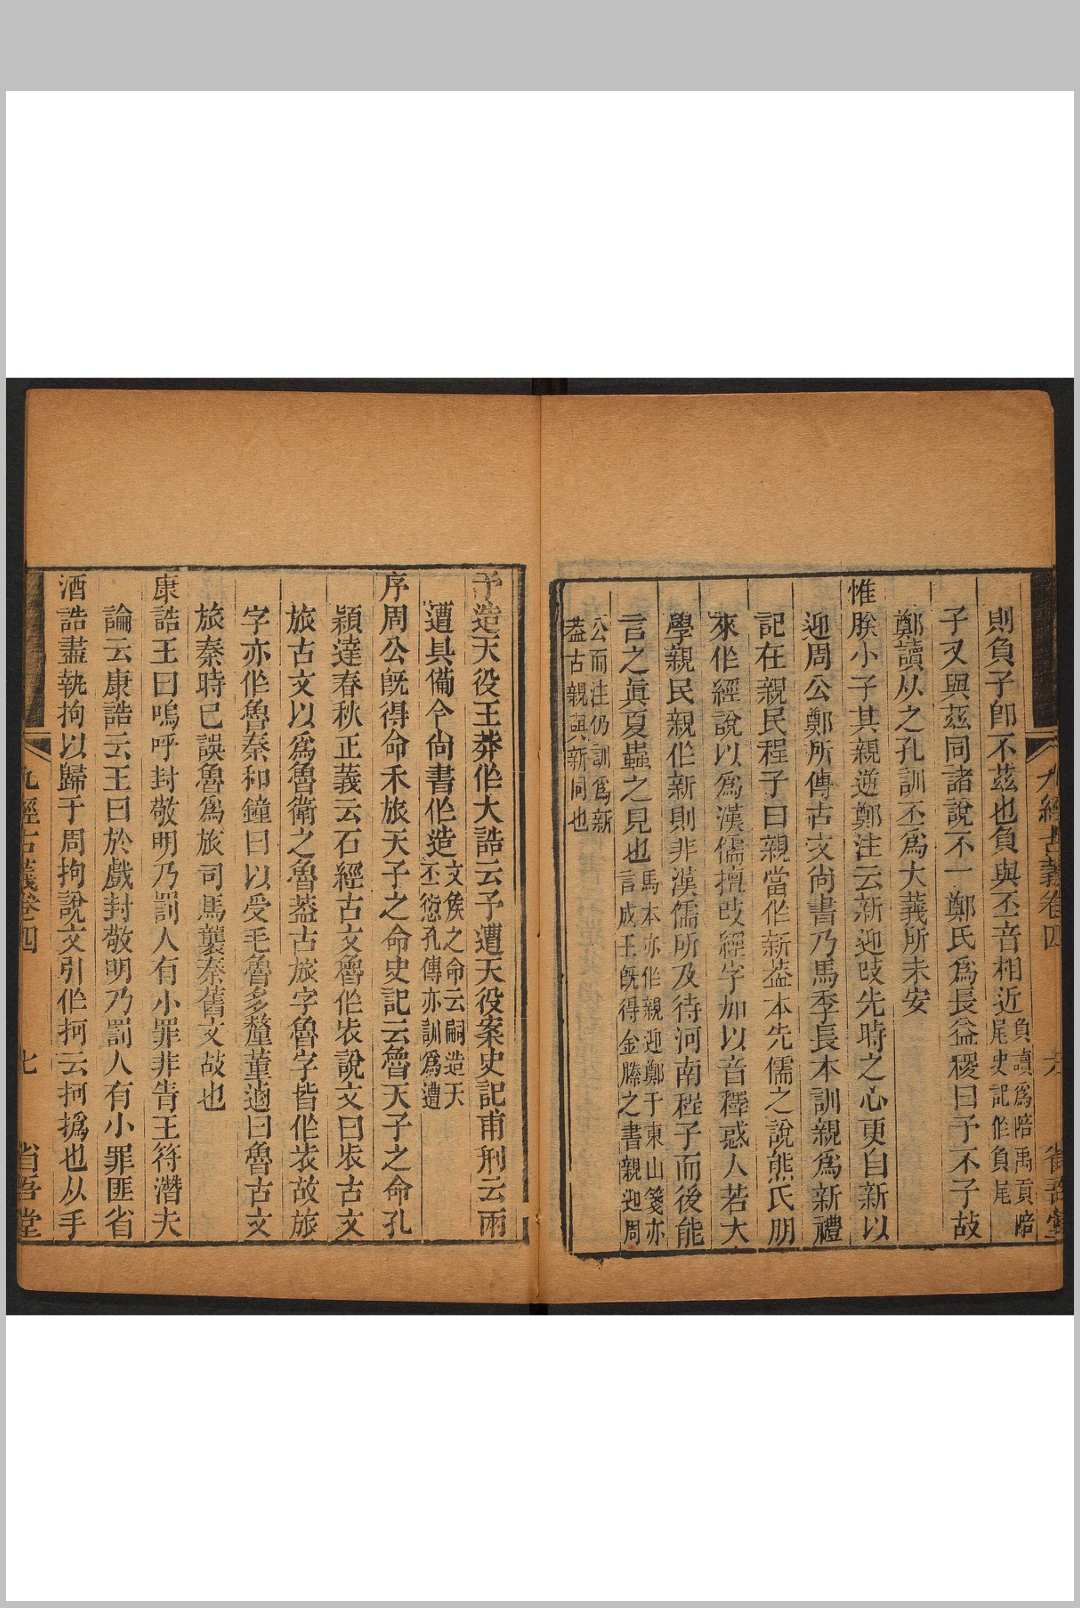 九經古義卷四 六 省吾堂
則負子卽不茲也負與丕音相近負讀爲陪禹貢陪
尾史記作負尾
子又與茲同諸說不一鄭氏爲長益稷曰予不子故
鄭讀从之孔訓丕爲大義所未安
惟朕小子其親逆鄭注云新迎改先時之心更自新以
迎周公鄭所傳古文尙書乃馬季長本訓親爲新禮
記在親民程子曰親當作新葢本先儒之說熊氏朋
來作經說以爲漢儒擅改經字加以音釋惑人若大
學親民親作新則非漢儒所及待河南程子而後能
言之眞夏蟲之見也馬本亦作親迎鄭于東山箋亦
言成王旣得金縢之書親迎周
公而注仍訓爲新
葢古親與新同也
予造天役王莽作大誥云予遭天役案史記甫刑云兩
遭具備今尙書作造文侯之命云嗣造天
丕愆孔傳亦訓爲遭
序周公旣得命禾旅天子之命史記云魯天子之命孔
穎達春秋正義云石經古文魯作㕥說文曰㕥古文
旅古文以爲魯衛之魯葢古旅字魯字皆作㕥故旅
字亦作魯秦和鐘曰以受毛魯多釐董逌曰魯古文
旅秦時已誤魯爲旅司馬襲秦舊文故也
康誥王曰嗚呼封敬明乃罰人有小罪非眚王符潛夫
論云康誥云王曰於戲封敬明乃罰人有小罪匪省
酒誥盡執拘以歸于周拘說文引作抲云抲撝也从手
九經古義卷四 七 省吾堂